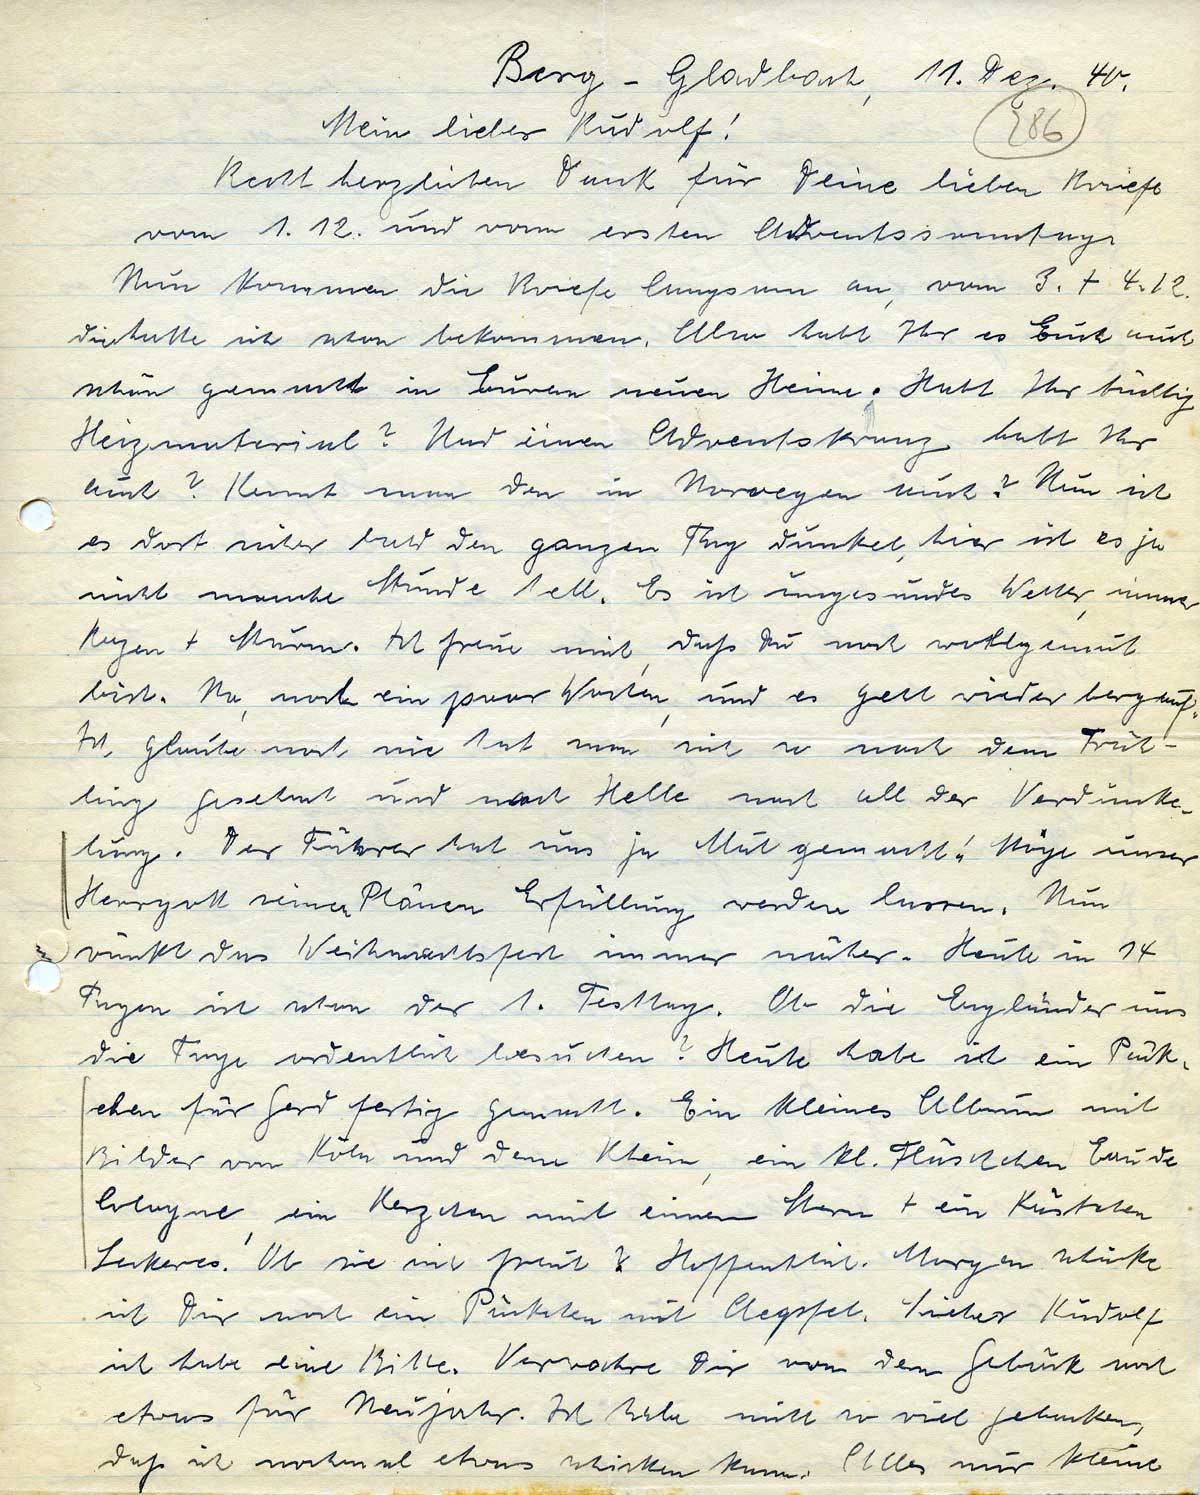 Berg – Gladbach, 11. Dez. 40.
286
Mein lieber Rudolf!
Recht herzlichen Dank für Deine lieben Briefe
vom 1.12. und vom ersten Adventssonntag.
Nun kommen die Briefe langsam an, vom 3. + 4.12.
die hatte ich schon bekommen. Also habt Ihr es Euch auch
schön gemacht in Euren neuen Heime. Habt Ihr tüchtig
Heizmaterial? Und einen Adventskranz habt Ihr
auch? Kennt man den in Norwegen auch? Nun ist
es dort sicher bald den ganzen Tag dunkel, hier ist es ja
nicht manche Stunde hell. Es ist ungesundes Wetter, immer
Regen + Sturm. Ich freue mich, daß Du noch wohlgemut
bist. Na, noch ein paar Wochen, und es geht wieder bergauf.
Ich glaube noch nie hat man sich so nach dem Früh-
ling gesehnt und nach Helle nach all der Verdunke-
lung. Der Führer hat uns ja Mut gemacht! Möge unser
Herrgott seinen Plänen Erfüllung werden lassen. Nun
rückt das Weihnachtsfest immer näher. Heute in 14
Tagen ist schon der 1. Festtag. Ob die Engländer uns
die Tage ordentlich besuchen? Heute habe ich ein Päck-
chen für Gerd fertig gemacht. Ein kleines Album mit
Bilder von Köln und dem Rhein, ein kl. Fläschchen Eau de
Cologne, ein Kerzchen mit einem Stern + ein Kästchen
Leckeres. Ob sie sich freut? Hoffentlich. Morgen schicke
ich Dir noch ein Päckchen mit Aepfel. Lieber Rudolf
ich habe eine Bitte. Verwahre Dir von dem Gebäck noch
etwas für Neujahr. Ich habe nicht so viel gebacken,
daß ich nochmal etwas schicken kann. Alles nur kleine